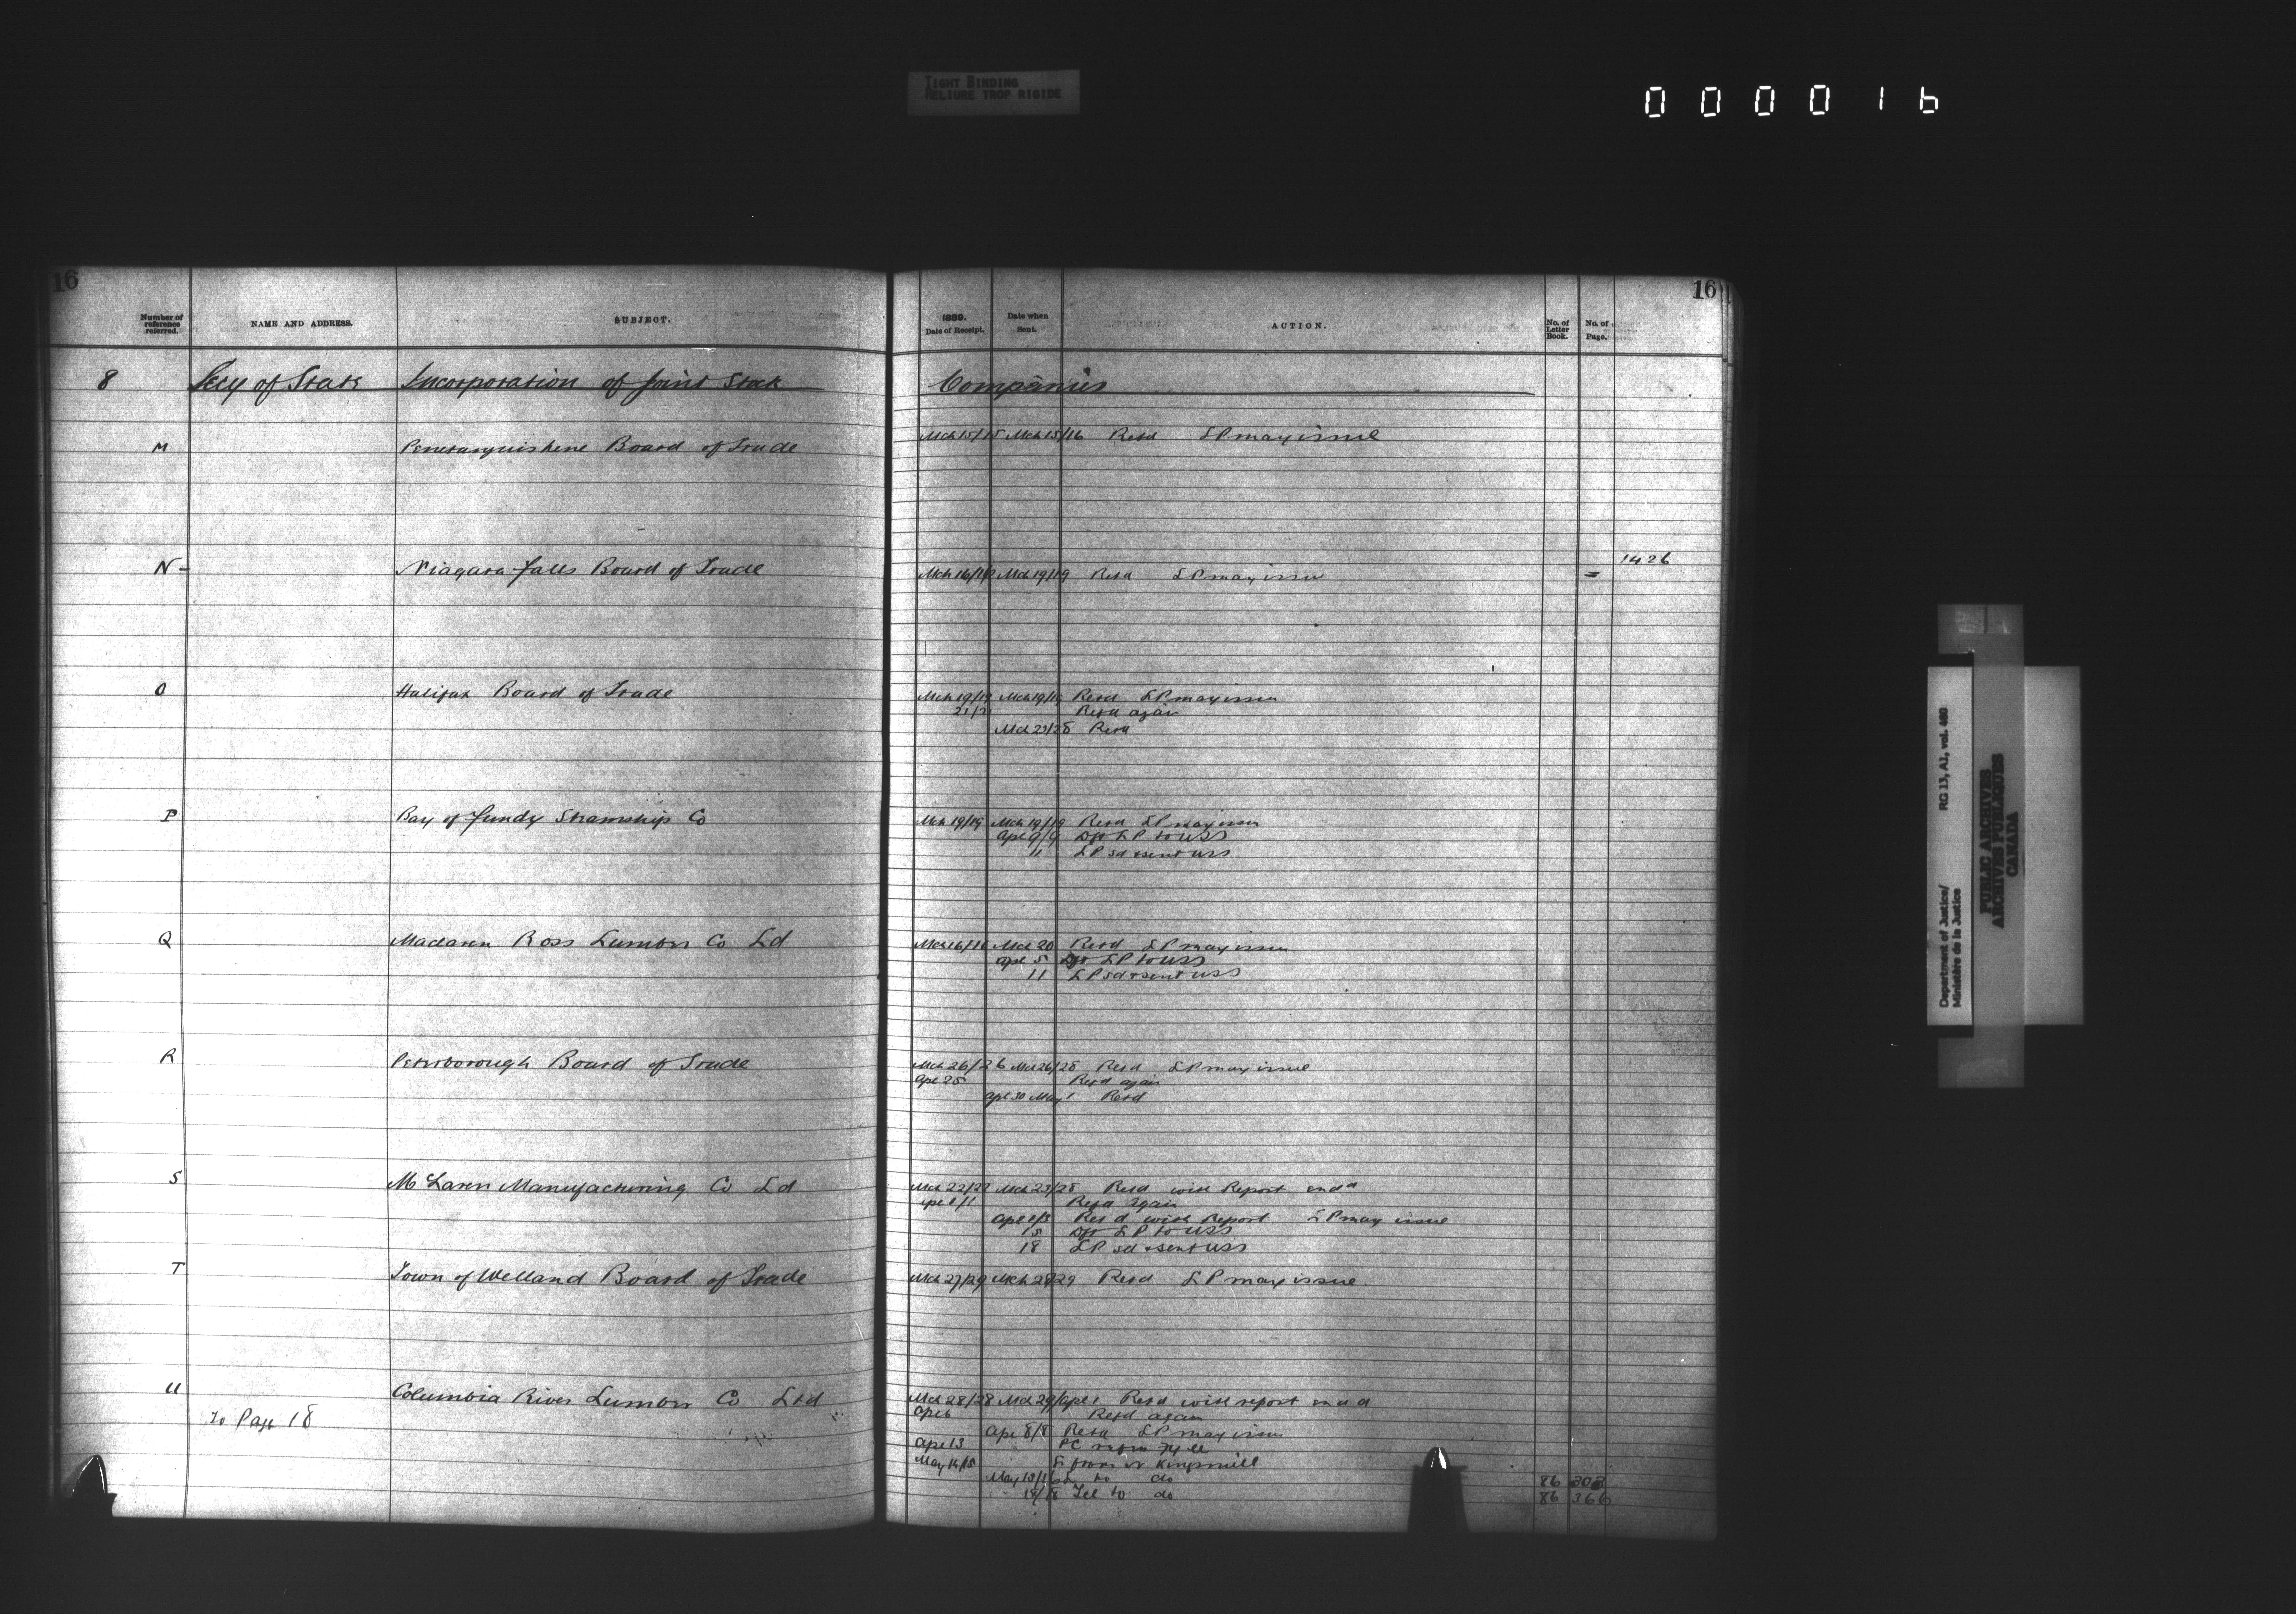 TIGHT BINDING
RELIURE TROP RIGIDE
0 0 0 0 1 6
16
16
Number of reference referred.
NAME AND ADDRESS.
SUBJECT.
1889.
Date of Receipt.
Date when Sent.
ACTION.
No. of Letter Book.
No. of Page.
8 Secy of State Incorporation of Joint Stock Companies
M Penetanguishene Board of Trade Mch 15/15 Mch 15/16 Retd LP may issue
N Niagara Falls Board of Trade Mch 16/18 Mch 19/19 Retd LP may issue = 1426
O Halifax Board of Trade Mch 19/19 Mch 19/19 Retd LP may issue
21/21 Refd again
Mch 23/25 Retd
P Bay of Fundy Steamship Co Mch 19/19 Mch 19/19 Retd LP may issue
Apl 9/9 Dft LP to USS
11 LP sd & sent USS
Q Maclaren Ross Lumber Co Ld Mch 16/18 Mch 20 Retd LP may issue
Apl 5 Dft LP to USS
11 LP sd & sent USS
R Peterborough Board of Trade Mch 26/26 Mch 26/28 Retd LP may issue
Apl 25 Refd again
Apl 30 May 1 Retd
S McLaren Manufacturing Co Ld Mch 22/22 Mch 23/25 Retd with Report endd
Apl 1/1 Refd again
Apl 2/3 Retd with Report LP may issue
15 Dft LP to USS
18 LP sd & sent USS
T Town of Welland Board of Trade Mch 27/29 Mch 28/29 Retd LP may issue
U Columbia River Lumber Co Ltd Mch 28/28 Mch 29/Apl 1 Retd with report endd
To Page 18
Apl 6 Refd again
Apl 8/8 Retd LP may issue
Apl 13 PC
May 14/15 L from Kingsmill
May 15/16 L to do 86 303
18/18 Tel to do 86 366
Department of Justice/
Ministère de la Justice
RG 13, A1, vol. 460
PUBLIC ARCHIVES
ARCHIVES PUBLIQUES
CANADA